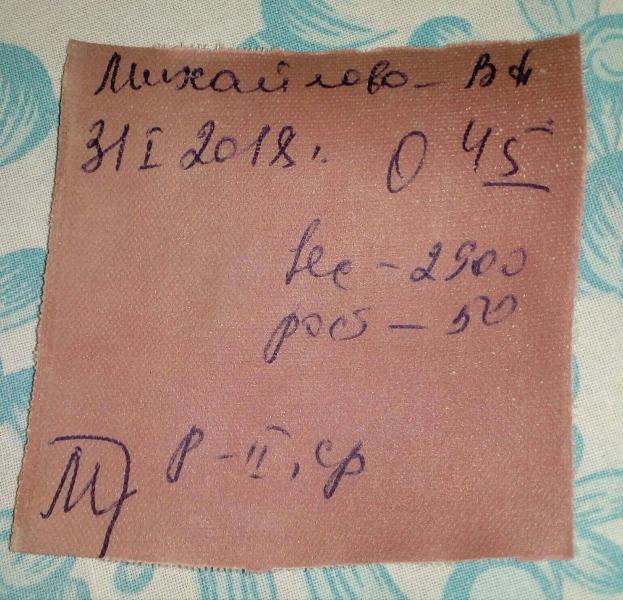 Михайлова - В
31 I 2018г. 0 45
вес - 2900
рост - 50
М
Р - II, ср